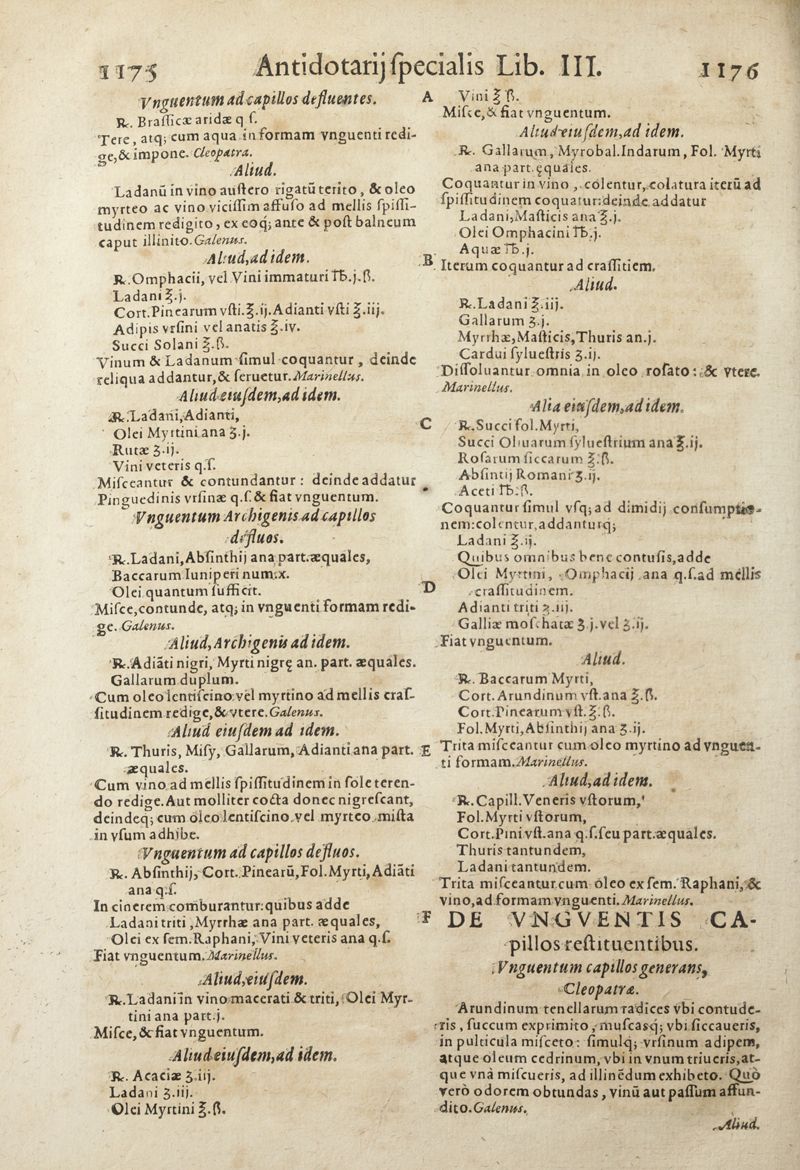 1175
Antidotarij ſpecialis Lib. III.
1176
Vnguentum ad capillos defluentes.
℞. Braſſicæ aridæ q ſ.
Tere, atq; cum aqua in formam vnguenti redi-
ge, & impone. Cleopatra.
Aliud.
Ladanū in vino auſtero rigatū terito, & oleo
myrteo ac vino viciſſim affuſo ad mellis ſpiſſi-
tudinem redigito, ex eoq; ante & poſt balneum
caput illinito. Galenus.
Aliud, ad idem.
℞. Omphacii, vel Vini immaturi ℔.j.ß.
Ladani ℥.j.
Cort. Pinearum vſti. ℥.ij. Adianti vſti ℥.iij.
Adipis vrſini vel anatis ℥.iv.
Succi Solani ℥.ß.
Vinum & Ladanum ſimul coquantur, deinde
reliqua addantur, & ſeruetur. Marinellus.
Aliud eiuſdem, ad idem.
℞. Ladani, Adianti,
Olei Myrtini ana ʒ.j.
Rutæ ʒ.ij.
Vini veteris q.ſ.
Miſceantur & contundantur: deinde addatur
Pinguedinis vrſinæ q.ſ. & fiat vnguentum.
Vnguentum Archigenis ad capillos
defluos.
℞. Ladani, Abſinthij ana part. æquales,
Baccarum Iuniperi num. x.
Olei quantum ſufficit.
Miſce, contunde, atq; in vnguenti formam redi-
ge. Galenus.
Aliud, Archigenis ad idem.
℞. Adiāti nigri, Myrti nigrę an. part. æquales.
Gallarum duplum.
Cum oleo lentiſcino vel myrtino ad mellis craſ-
ſitudinem redige, & vtere. Galenus.
Aliud eiuſdem ad idem.
℞. Thuris, Miſy, Gallarum, Adianti ana part.
æquales.
Cum vino ad mellis ſpiſſitudinem in ſole teren-
do redige. Aut molliter cocta donec nigreſcant,
deindeq; cum oleo lentiſcino vel myrteo miſta
in vſum adhibe.
Vnguentum ad capillos defluos.
℞. Abſinthij, Cort. Pinearū, Fol. Myrti, Adiāti
ana q.ſ.
In cinerem comburantur: quibus adde
Ladani triti, Myrrhæ ana part. æquales,
Olei ex ſem. Raphani, Vini veteris ana q.ſ.
Fiat vnguentum. Marinellus.
Aliud, eiuſdem.
℞. Ladani in vino macerati & triti, Olei Myr-
tini ana part. j.
Miſce, & fiat vnguentum.
Aliud eiuſdem, ad idem.
℞. Acaciæ ʒ.iij.
Ladani ʒ.iij.
Olei Myrtini ℥.ß.
A
Vini ℥ ß.
Miſce, & fiat vnguentum.
Aliud eiuſdem, ad idem.
℞. Gallarum, Myrobal. Indarum, Fol. Myrti
ana part. ęquales.
Coquantur in vino, colentur, colatura iterū ad
ſpiſſitudinem coquatur: deinde addatur
Ladani, Maſticis ana ℥.j.
Olei Omphacini ℔.j.
Aquæ ℔.j.
B
Iterum coquantur ad craſſitiem.
Aliud.
℞. Ladani ℥.iij.
Gallarum ʒ.j.
Myrrhæ, Maſticis, Thuris an.j.
Cardui ſylueſtris ʒ.ij.
Diſſoluantur omnia in oleo roſato: & vtere.
Marinellus.
Alia eiuſdem, ad idem.
C
℞. Succi fol. Myrti,
Succi Oliuarum ſylueſtrium ana ℥.ij.
Roſarum ſiccarum ℥.ß.
Abſintij Romani ʒ.ij.
Aceti ℔.ß.
Coquantur ſimul vſq; ad dimidij conſumptio-
nem: colentur, addanturq;
Ladani ℥.ij.
Quibus omnibus bene contuſis, adde
Olei Myrtini, Omphacij ana q.ſ. ad mellis
D
craſſitudinem.
Adianti triti ʒ.iij.
Galliæ moſchatæ ʒ j. vel ʒ.ij.
Fiat vnguentum.
Aliud.
℞. Baccarum Myrti,
Cort. Arundinum vſt. ana ℥.ß.
Cort. Pinearum vſt. ℥.ß.
Fol. Myrti, Abſinthij ana ʒ.ij.
E
Trita miſceantur cum oleo myrtino ad vnguen-
ti formam. Marinellus.
Aliud, ad idem.
℞. Capill. Veneris vſtorum,
Fol. Myrti vſtorum,
Cort. Pini vſt. ana q.ſ. ſeu part. æquales.
Thuris tantundem,
Ladani tantundem.
Trita miſceantur cum oleo ex ſem. Raphani, &
vino, ad formam vnguenti. Marinellus.
F
DE VNGVENTIS CA-
pillos reſtituentibus.
Vnguentum capillos generans,
Cleopatræ.
Arundinum tenellarum radices vbi contude-
ris, ſuccum exprimito, muſcasq; vbi ſiccaueris,
in pulticula miſceto: ſimulq; vrſinum adipem,
atque oleum cedrinum, vbi in vnum triueris, at-
que vnà miſcueris, ad illinēdum exhibeto. Quò
verò odorem obtundas, vinū aut paſſum affun-
dito. Galenus.
Aliud.